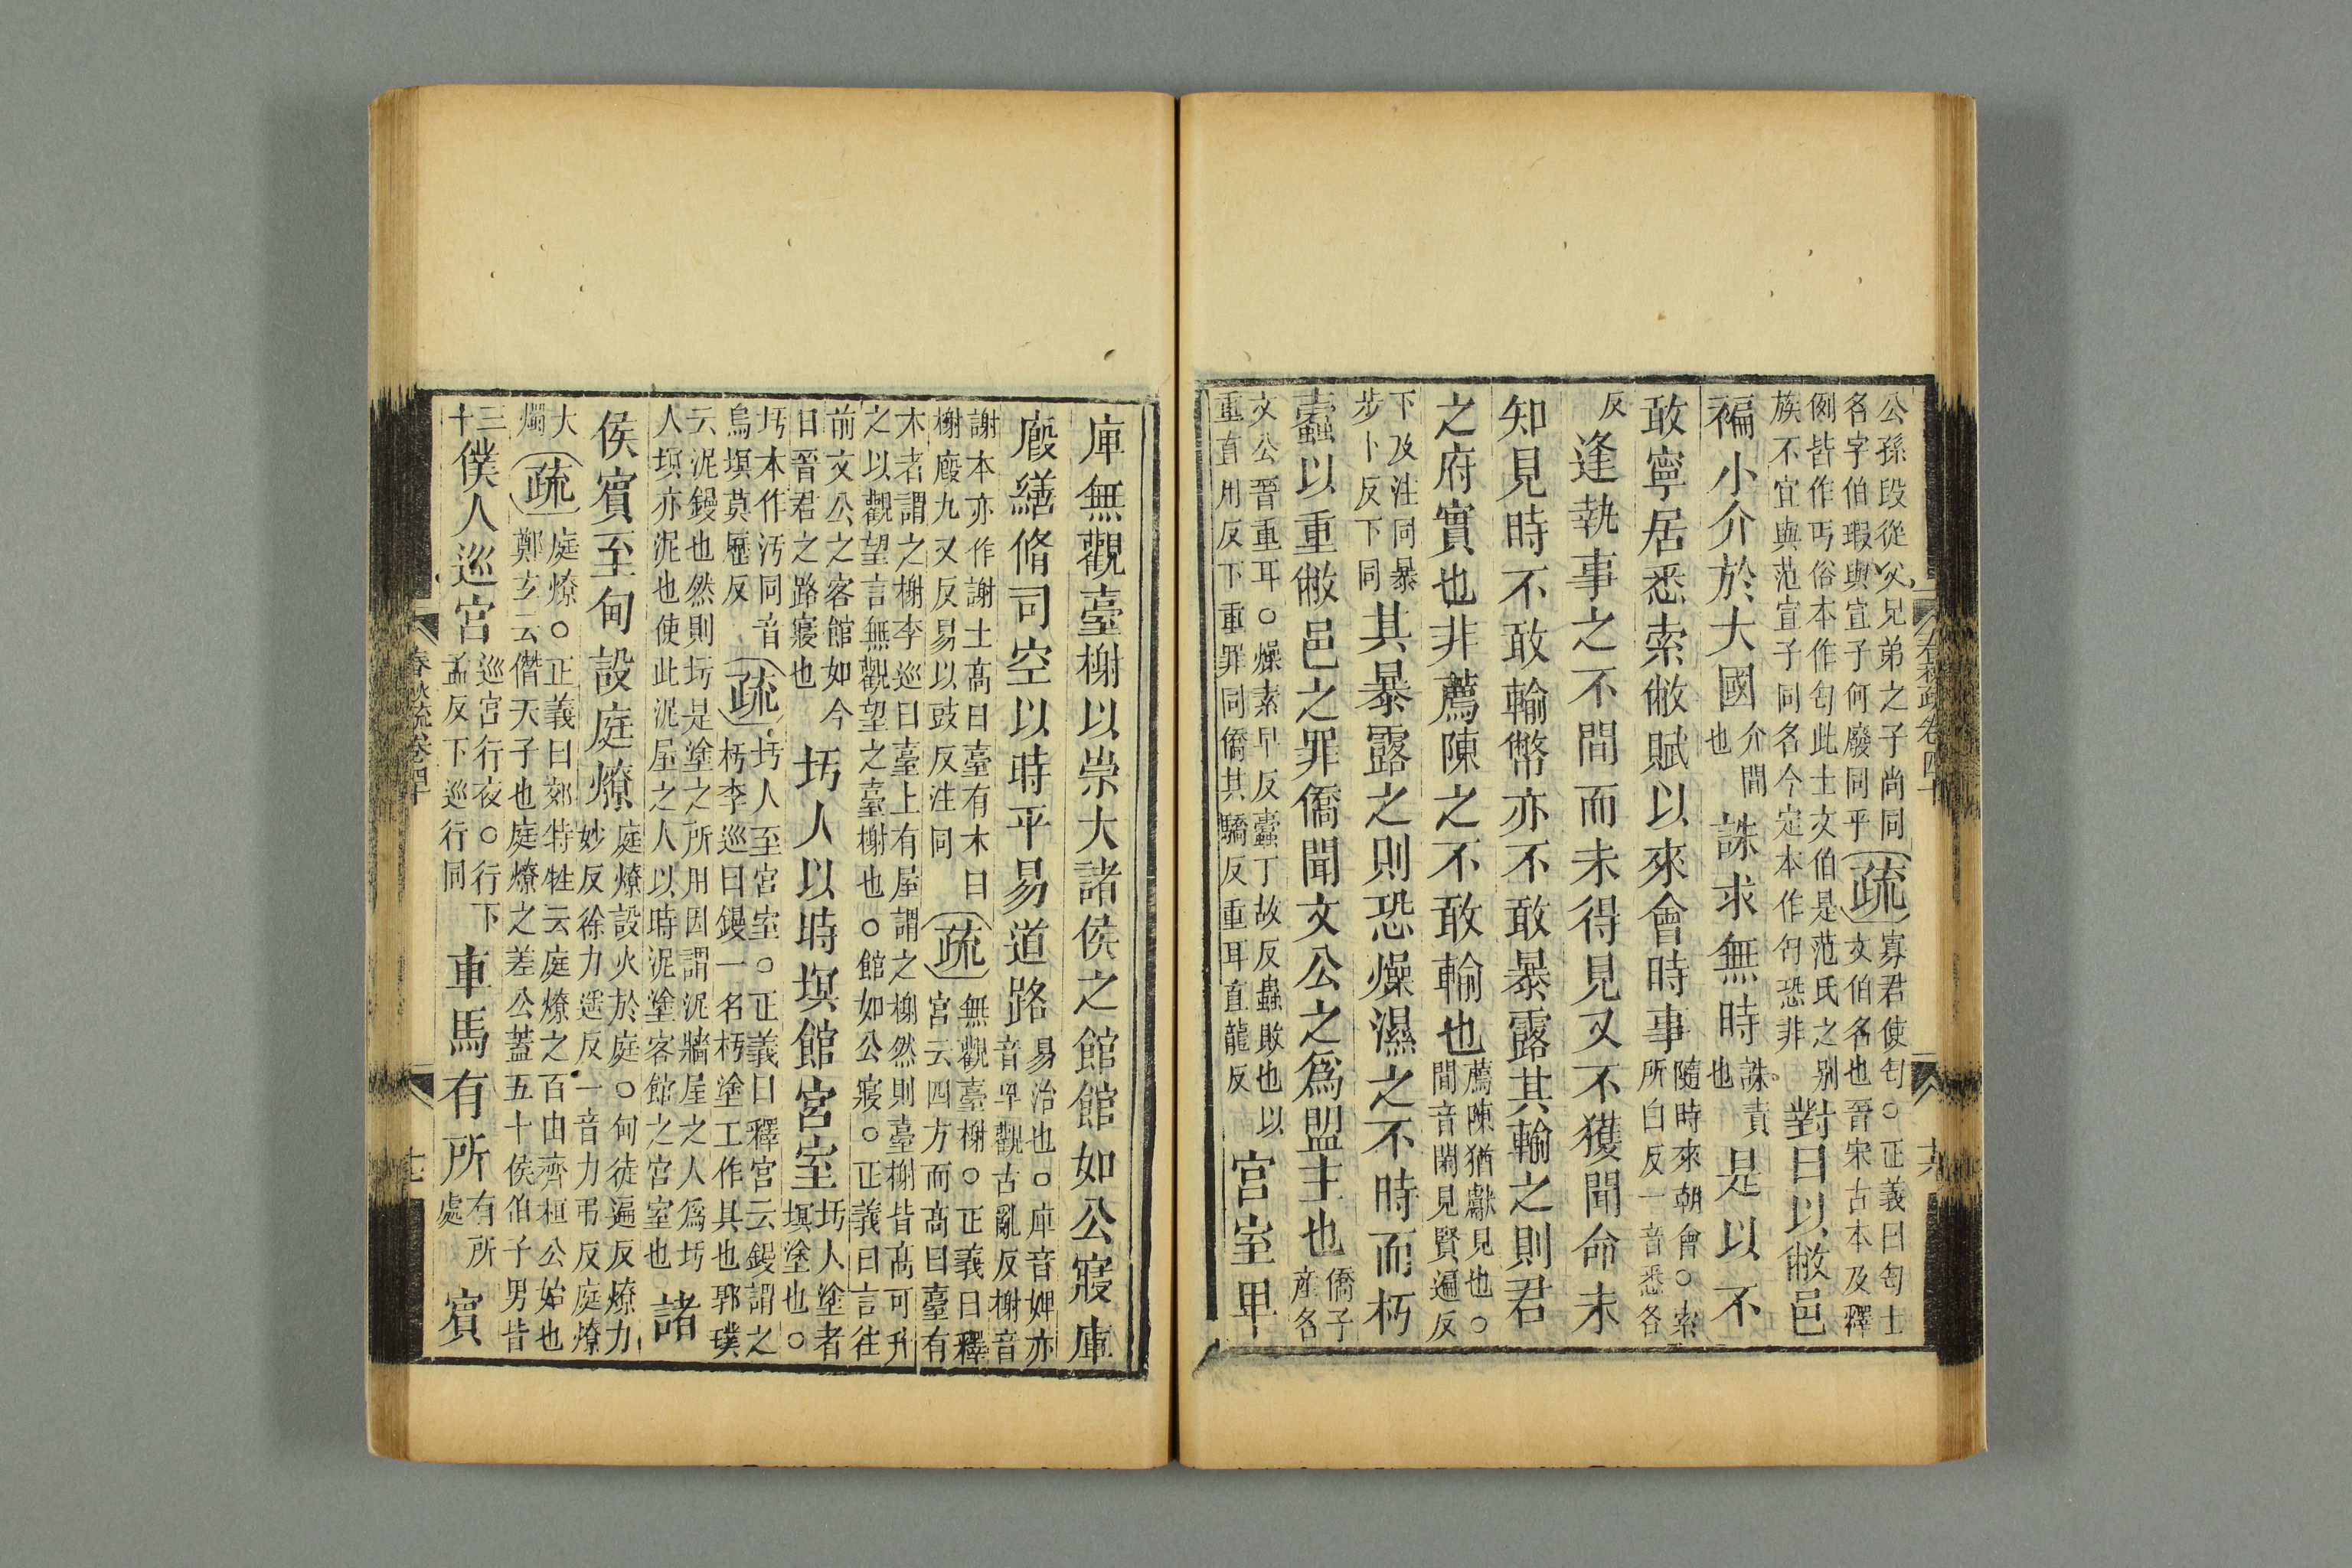 公孫段從父兄弟之子尚同疏寡君使匄○正義曰匄士
名字伯瑕與宜子何廢同乎 文伯名也晉宋古本及釋
例皆作丐俗本作匄此士文伯是范氏之别
族不宜與范宣子同名今定本作匄恐非 對曰以敝邑
褊小介於大國介間也誅求無時誅責也是以不
敢寧居悉索敝賦以來會時事隨時來朝會○索所白反一音悉各
反逢執事之不間而未得見又不獲聞命未
知見時不敢輸幣亦不敢暴露其輸之則君
之府實也非薦陳之不敢輸也薦陳猶獻見也○間音閑見賢遍反
下及注同暴步卜反下同其暴露之則恐燥濕之不時而朽
蠹以重敝邑之罪僑聞文公之爲盟主也僑子產名
文公晉重耳○燥素早反蠹丁故反蟲敗也以
重直用反下重罪同僑其驕反重耳直龍反 宮室卑
春秋疏卷四十
庳無觀臺榭以崇大諸侯之館館如公寢庫
廐繕脩司空以時平易道路易治也○庳音婢亦音卑觀古亂反榭音
謝本亦作謝土高曰臺有木曰榭廐九又反易以豉反注同疏無觀臺榭○正義曰釋宮云四方而高曰臺有
木者謂之榭李巡曰臺上有屋謂之榭然則臺榭皆高可升
之以觀望言無觀望之臺榭也○館如公寢○正義曰言往
前文公之客館如今
日晉君之路寢也 圬人以時塓館宮室圬人塗者塓塗也○
圬本作汚同音烏塓莫歷反疏圬人至宮室○正義曰釋宮云鏝謂之杇李巡曰鏝一名杇塗工作具也郭璞
云泥鏝也然則圬是塗之所用因謂泥牆屋之人爲圬
人塓亦泥也使此泥屋之人以時泥塗客館之宮室也 諸
侯賓至甸設庭燎庭燎設火於庭○甸徒遍反燎力妙反徐力遥反一音力弔反庭燎
大燭疏庭燎○正義曰郊特牲云庭燎之百由齊桓公始也鄭玄云僭天子也庭燎之差公蓋五十侯伯子男皆
三十僕人巡宮巡宮行夜○行下孟反下巡行同車馬有所有所處賓
春秋疏卷四十